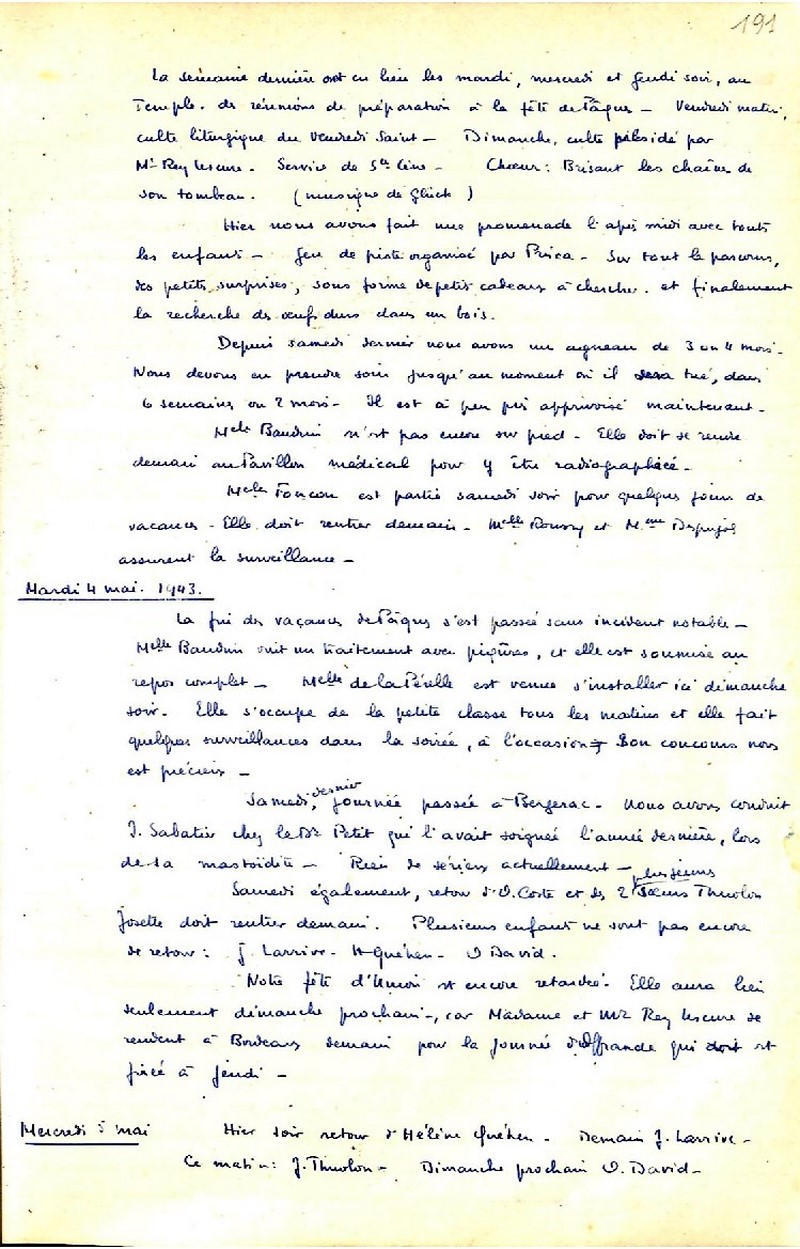 191
La semaine dernière ont eu lieu les mardi, mercredi et jeudi soir, au
Temple. des réunions de préparation à la fête de Pâques - Vendredi matin,
culte liturgique du Vendredi Saint - Dimanche, culte présidé par
Mr Rey Lescure. Service de Ste Cène - Chœur : Brisant les chaînes de
son tombeau. (musique de Glück)
Hier nous avons fait une promenade l'après midi avec touts
les enfants - Jeu de piste organisé par Prisca - Sur tout le parcours,
des petites surprises, sous forme de petits cadeaux à chercher. et finalement
la recherche des œufs durs dans un bois.
Depuis samedi dernier nous avons un agneau de 3 ou 4 mois.
Nous devons en prendre soin jusqu'au moment où il sera tué, dans
6 semaines ou 2 mois - Il est à peu près apprivoisé maintenant -
Melle Baudrin n'est pas encore sur pied - Elle doit se rendre
demain au Pavillon médical pour y être radiographiée -
Melle Foncon est partie samedi soir pour quelques jours de
vacances - Elle doit rentrer demain - Melle Roussy et Mme Despujols
assurent la surveillance -
Mardi 4 mai. 1943.
La fin des vacances de Pâques s'est passée sans incident notable -
Melle Baudrin suit un traitement avec piqûres, et elle est soumise au
repos complet - Melle de la Pérelle est venue s'installer ici dimanche
soir. Elle s'occupe de la petite classe tous les matins et elle fait
quelques surveillances dans la soirée, à l'occasion - Son concours nous
est précieux -
Samedi, dernier journée passée à Bergerac - Nous avons conduit
J. Sabatier chez le Dr Petit qui l'avait soignée l'année dernière, lors
de sa mastoïdite - Rien de sérieux actuellement -
Samedi également, retour d'O. Coste et des 2 plus jeunes sœurs Thurlon
Josette doit rentrer demain. Plusieurs enfants ne sont pas encore
de retour : J. Larrive - H Quéhen - O David.
Notre fête d'Union est encore retardée. Elle aura lieu
seulement dimanche prochain -, car Madame et Mr Rey Lescure se
rendent à Bordeaux demain pour la journée d'offrande qui doit est
fixée à jeudi -
Mercredi 5 mai Hier soir retour d'Hélène Quéhen - Demain J. Larrive -
Ce matin : J. Thurlon - Dimanche prochain O. David -